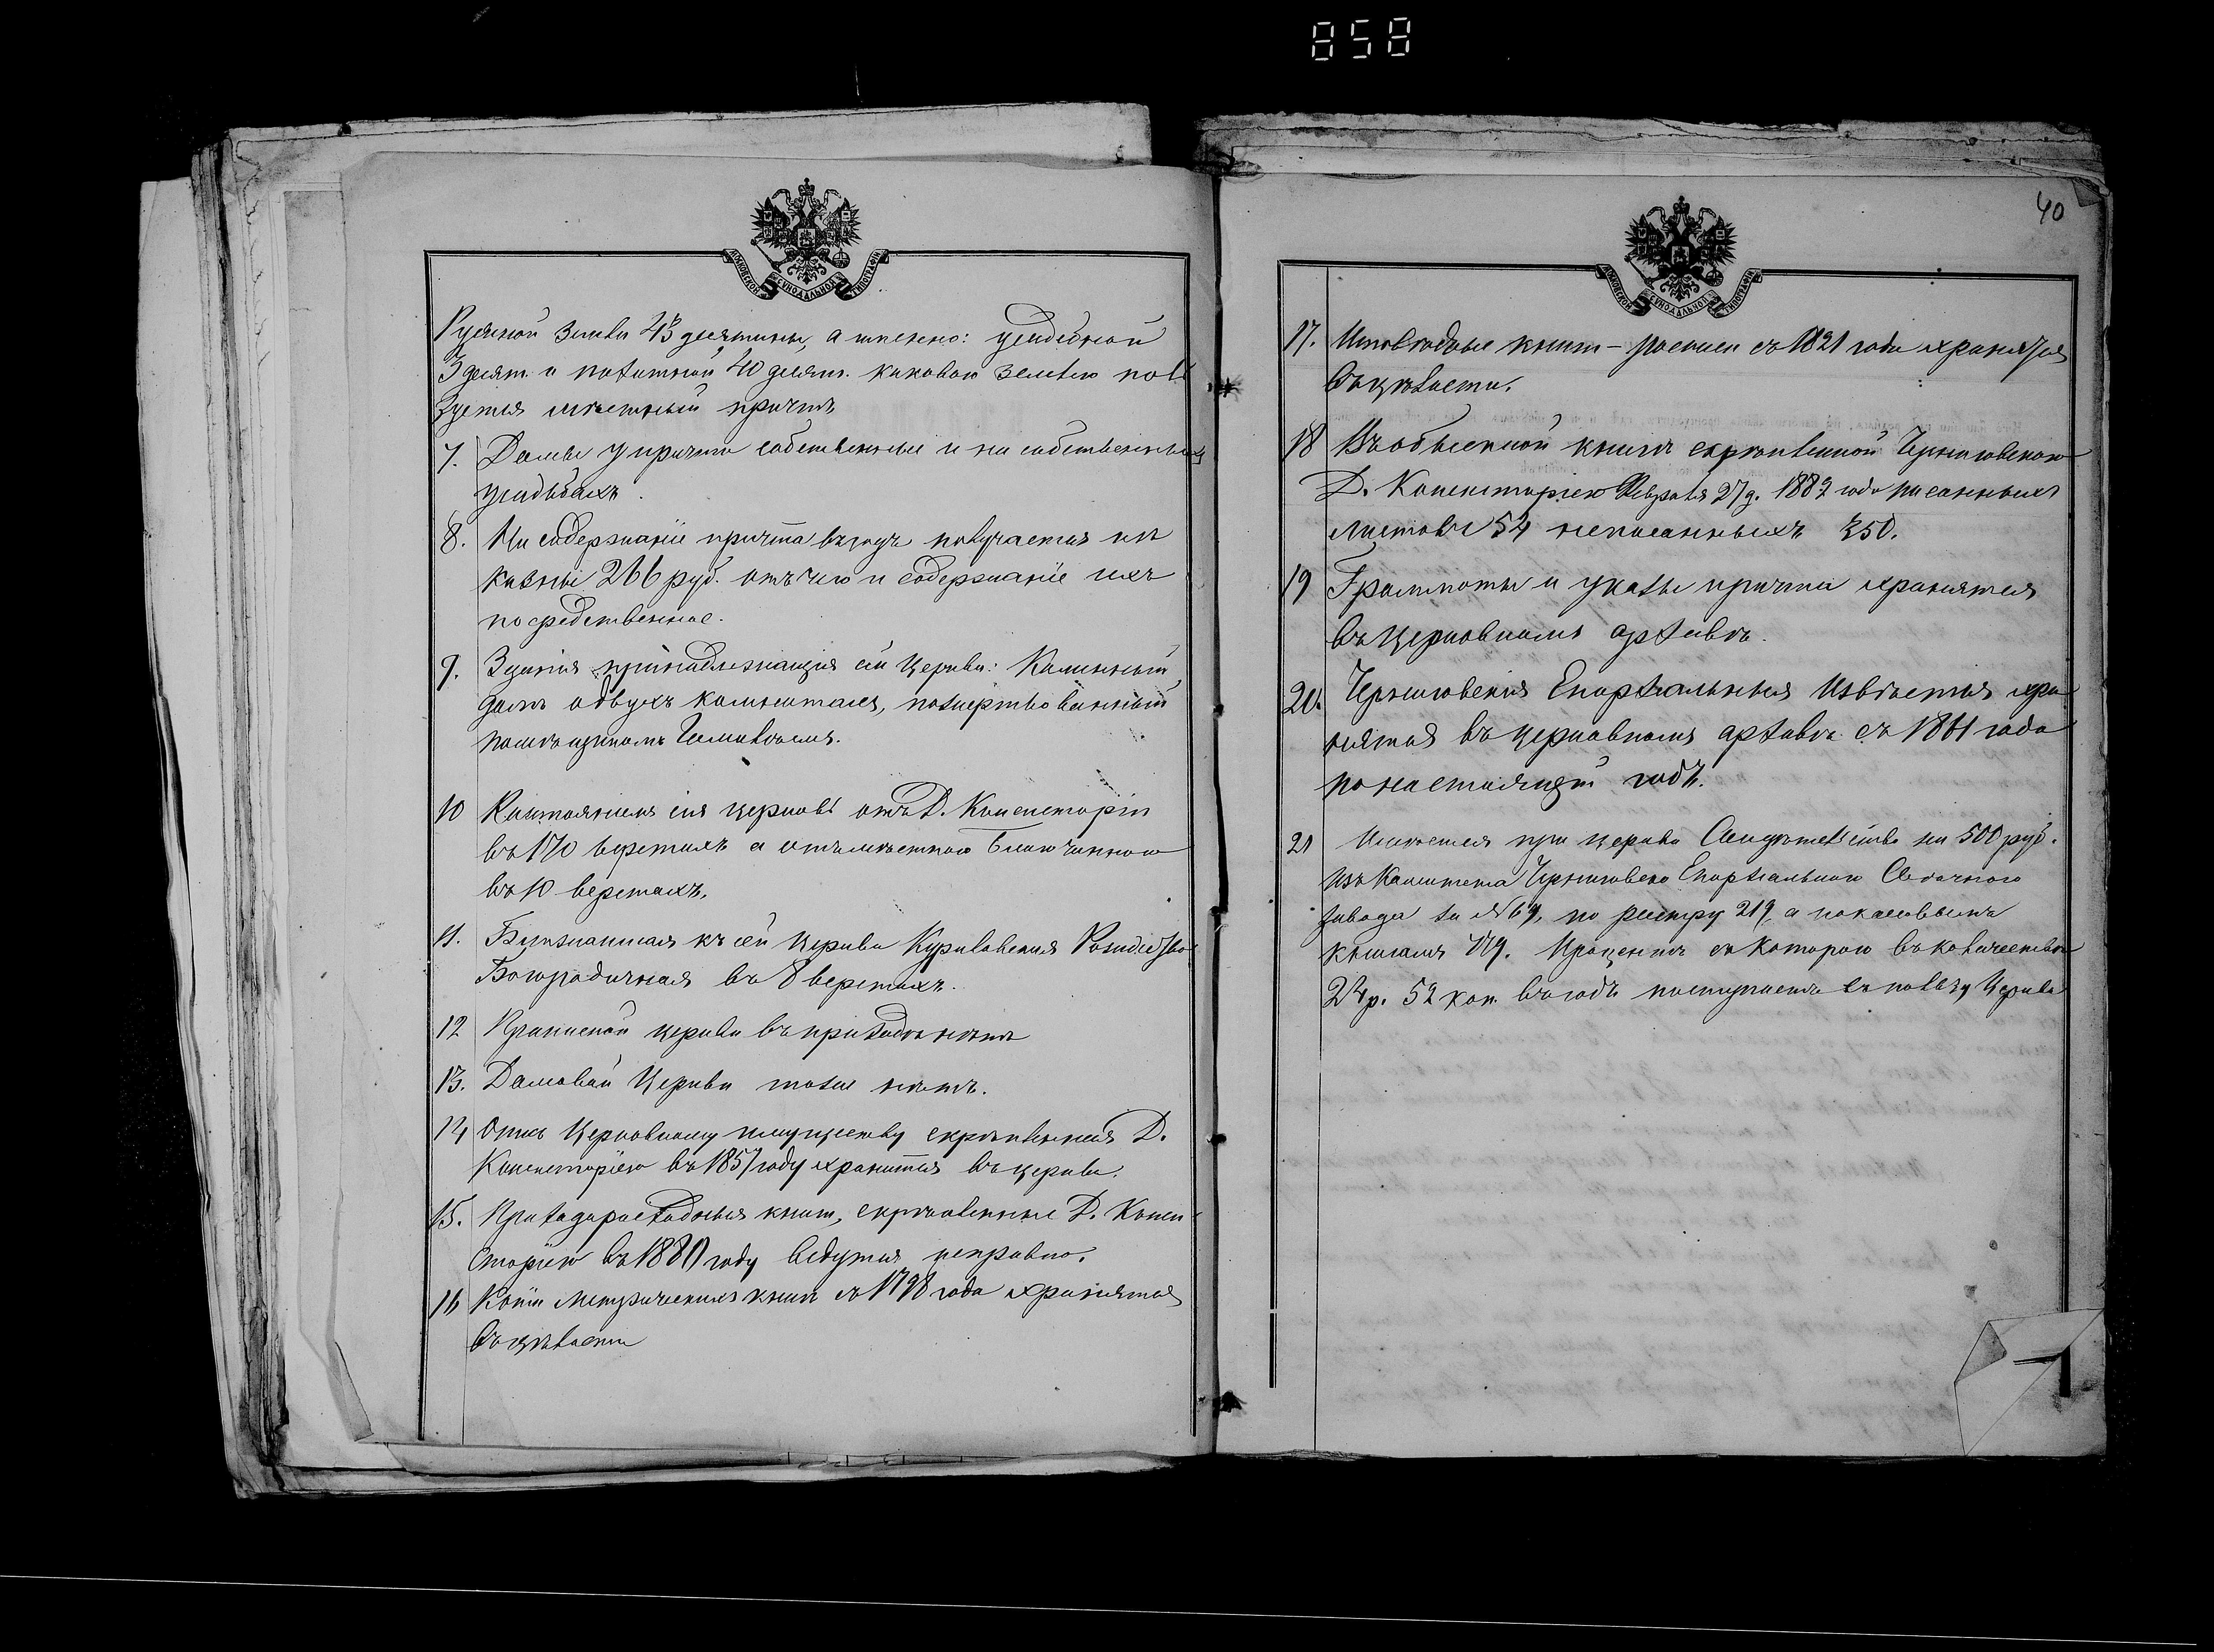 858
МОСКОВСКОЙ СѴНОДАЛЬНОЙ ТИПОГРАФІИ
Ружной земли 43 десятины, а именно: усадебной
3 десят. и пахатной 40 десят. каковою землею поль
зуется мѣстный причтъ
7. Домы у причта собственные и на собственныхъ
усадьбахъ.
8. На содержаніе причта въ годъ получается изъ
казны 266 руб. отъ чего и содержаніе ихъ
посредственное.
9. Зданія принадлежащія сей церкви: Каменный
домъ о двухъ комнатахъ, пожертвованный
помѣщикомъ
10 Разстояніемъ сія церковь отъ Д. Консисторіи
въ 170 верстахъ а отъ мѣстнаго Благочиннаго
въ 10 верстахъ.
11. Ближайшая къ сей церкви Куриловская Рождество
Богородичная въ 8 верстахъ.
12 Приписной церкви въ приходѣ нѣтъ
13. Домовой Церкви тоже нѣтъ.
14 Опись церковному имуществу скрѣпленная Д.
Консисторіею въ 1857 году хранится въ церкви.
15. Приходорасходныя книги, скрѣпленные Д. Конси
сторіею въ 1880 году ведутся исправно.
16 Копіи метрическихъ книгъ съ 1798 года хранятся
въ цѣлости
40
МОСКОВСКОЙ СѴНОДАЛЬНОЙ ТИПОГРАФІИ
17. Исповѣдные книги - росписи съ 1821 года хранятся
въ цѣлости.
18 Въ обыскной книгѣ скрѣпленной Черниговскою
Д. Консисторіею Февраля 27 д. 1882 года писанныхъ
листовъ 54 неписанныхъ 350.
19 Граммоты и указы причта хранятся
въ церковномъ архивѣ.
20. Черниговскія Епархіальныя Извѣстія хра
нятся въ церковномъ архивѣ съ 1861 года
по настоящій годъ.
21 Имѣется при церкви Свидѣтельство на 500 руб.
изъ Комитета Черниговскаго Епархіальнаго Свѣчного
завода за № 69, по реестру 219, а по кассовымъ
книгамъ 179. Процентъ съ котораго въ количествѣ
24 р. 52 коп. въ годъ поступаетъ въ пользу Церкви